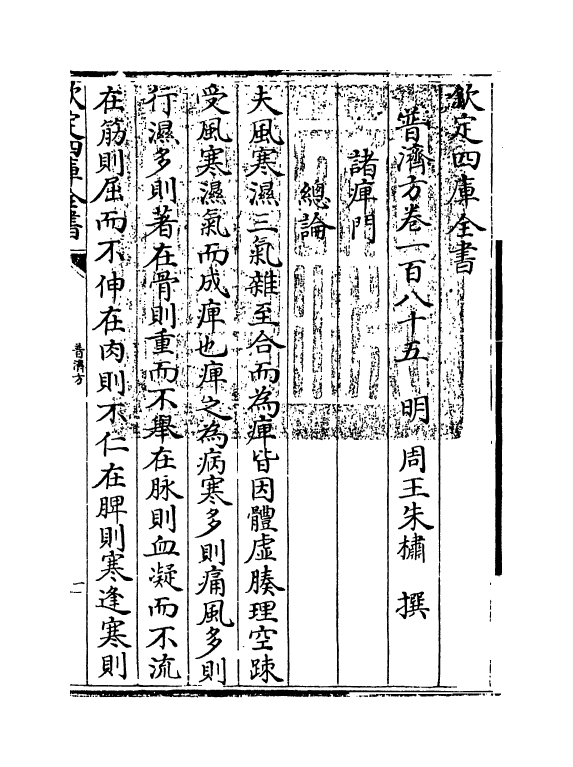 欽定四庫全書
普濟方卷一百八十五 明 周王朱橚 撰
諸痺門
總論
夫風寒濕三氣雜至合而為痺皆因體虛腠理空踈
受風寒濕氣而成痺也痺之為病寒多則痛風多則
行濕多則著在骨則重而不舉在脉則血凝而不流
在筋則屈而不伸在肉則不仁在脾則寒逢寒則
欽定四庫全書
普濟方